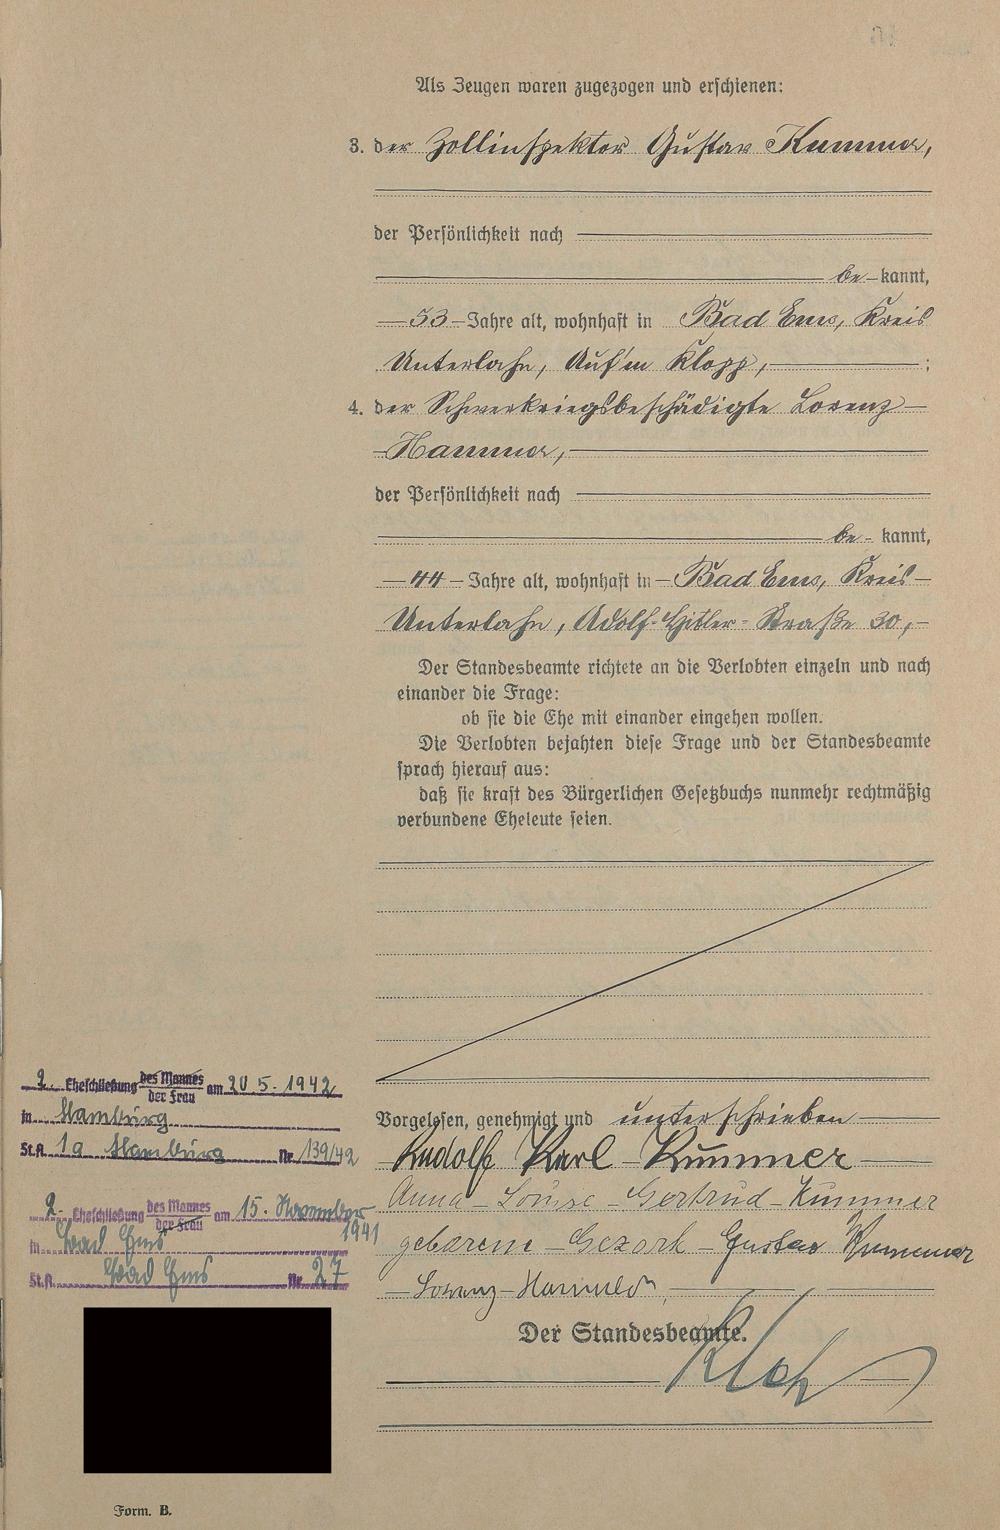 Als Zeugen waren zugezogen und erschienen:
3. der Zollinspektor Gustav Kummer,
der Persönlichkeit nach
be-kannt,
53 Jahre alt, wohnhaft in Bad Ems, Kreis
Unterlahn, Auf'm Klopp, ;
4. der Schwerkriegsbeschädigte Lorenz
Hammer,
der Persönlichkeit nach
be- kannt,
44 Jahre alt, wohnhaft in Bad Ems, Kreis
Unterlahn, Adolf-Hitler-Straße 30,
Der Standesbeamte richtete an die Verlobten einzeln und nach
einander die Frage:
ob sie die Ehe mit einander eingehen wollen.
Die Verlobten bejahten diese Frage und der Standesbeamte
sprach hierauf aus:
daß sie kraft des Bürgerlichen Gesetzbuchs nunmehr rechtmäßig
verbundene Eheleute seien.
Vorgelesen, genehmigt und unterschrieben
Rudolf Karl Kummer
Anna Louise Gertrud Kummer
geborene Gustav Kummer
Lorenz Hammer
Der Standesbeamte.
2. Eheschließung des Mannes der Frau am 20 5. 1942
in Hamburg
St.A. 1a Hamburg Nr. 139/42
2. Eheschließung des Mannes der Frau am 15. November
1941
in Bad Ems
St.A. Bad Ems Nr. 27
Form. B.